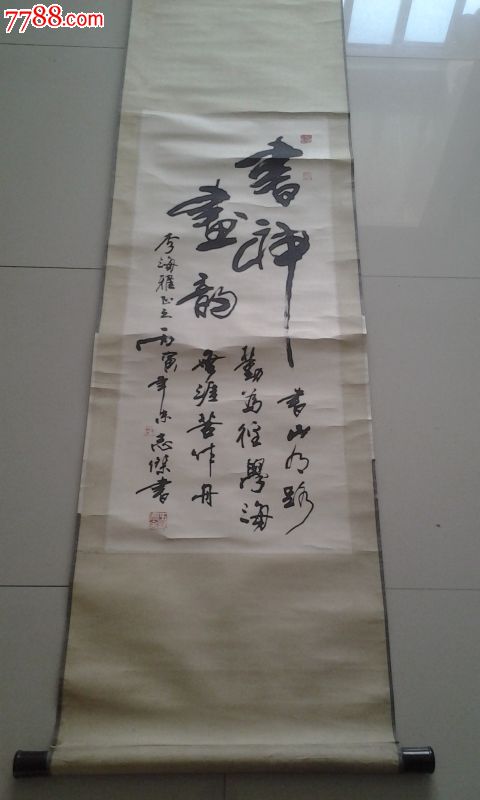 7788.com
中国收藏热线
書神
畫韵
書山有路
勤為徑學海
無涯苦作舟
海雅正之丙寅年朱志傑書